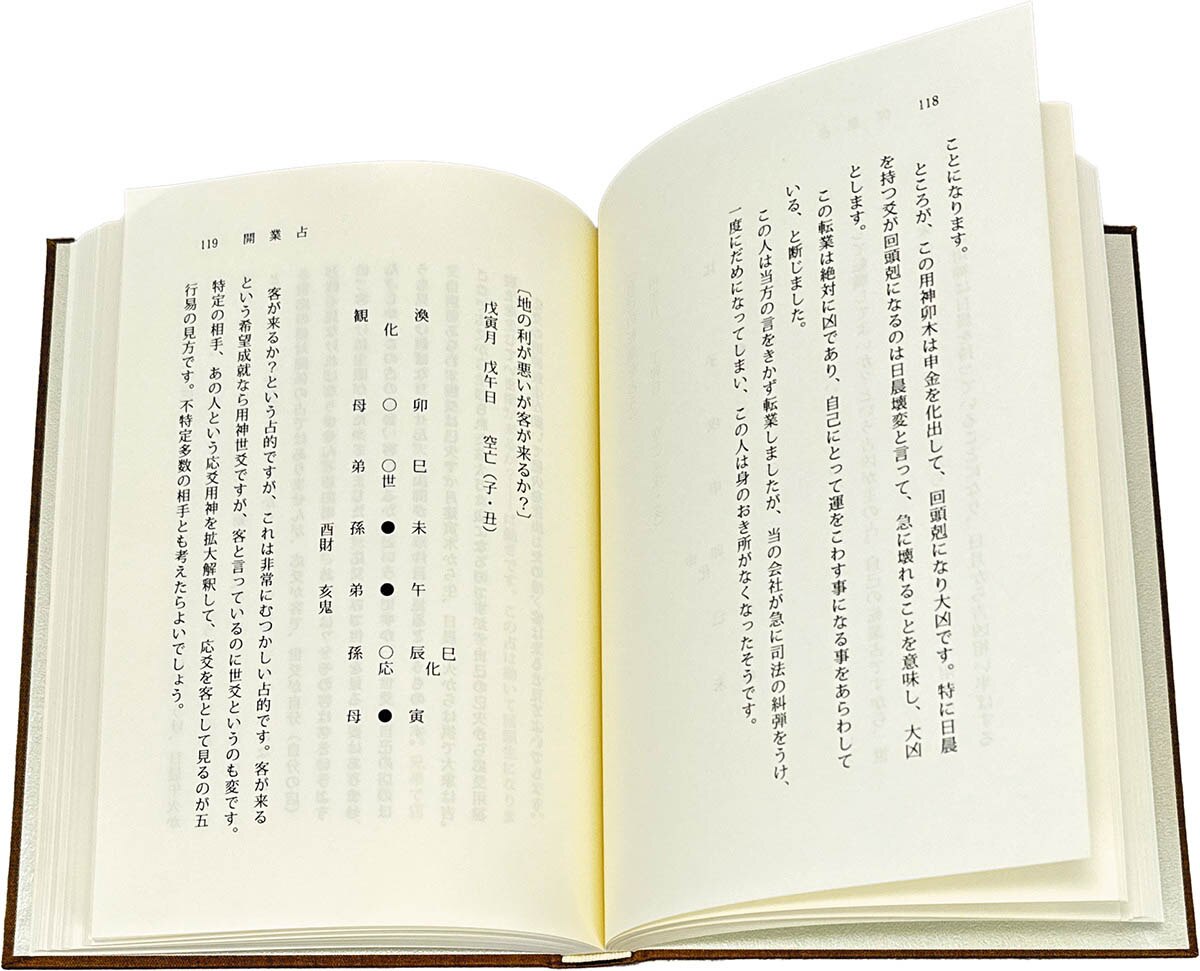 118
ことになります。
ところが、この用神卯木は申金を化出して、回頭剋になり大凶です。特に日晨
を持つ爻が回頭剋になるのは日晨壊変と言って、急に壊れることを意味し、大凶
とします。
この転業は絶対に凶であり、自己にとって運をこわす事になる事をあらわして
いる、と断じました。
この人は当方の言をきかず転業しましたが、当の会社が急に司法の糾弾をうけ、
一度にだめになってしまい、この人は身のおき所がなくなったそうです。
119 開業占
〔地の利が悪いが客が来るか？〕
戊寅月 戊午日 空亡（子・丑）
巳
化
渙 卯 巳 未 午 辰 寅
化 〇 〇世 ● ● 〇応 ●
観 母 弟 孫 弟 孫 母
酉財 亥鬼
客が来るか？という占的ですが、これは非常にむつかしい占的です。客が来る
という希望成就なら用神世爻ですが、客と言っているのに世爻というのも変です。
特定の相手、あの人という応爻用神を拡大解釈して、応爻を客として見るのが五
行易の見方です。不特定多数の相手とも考えたらよいでしょう。